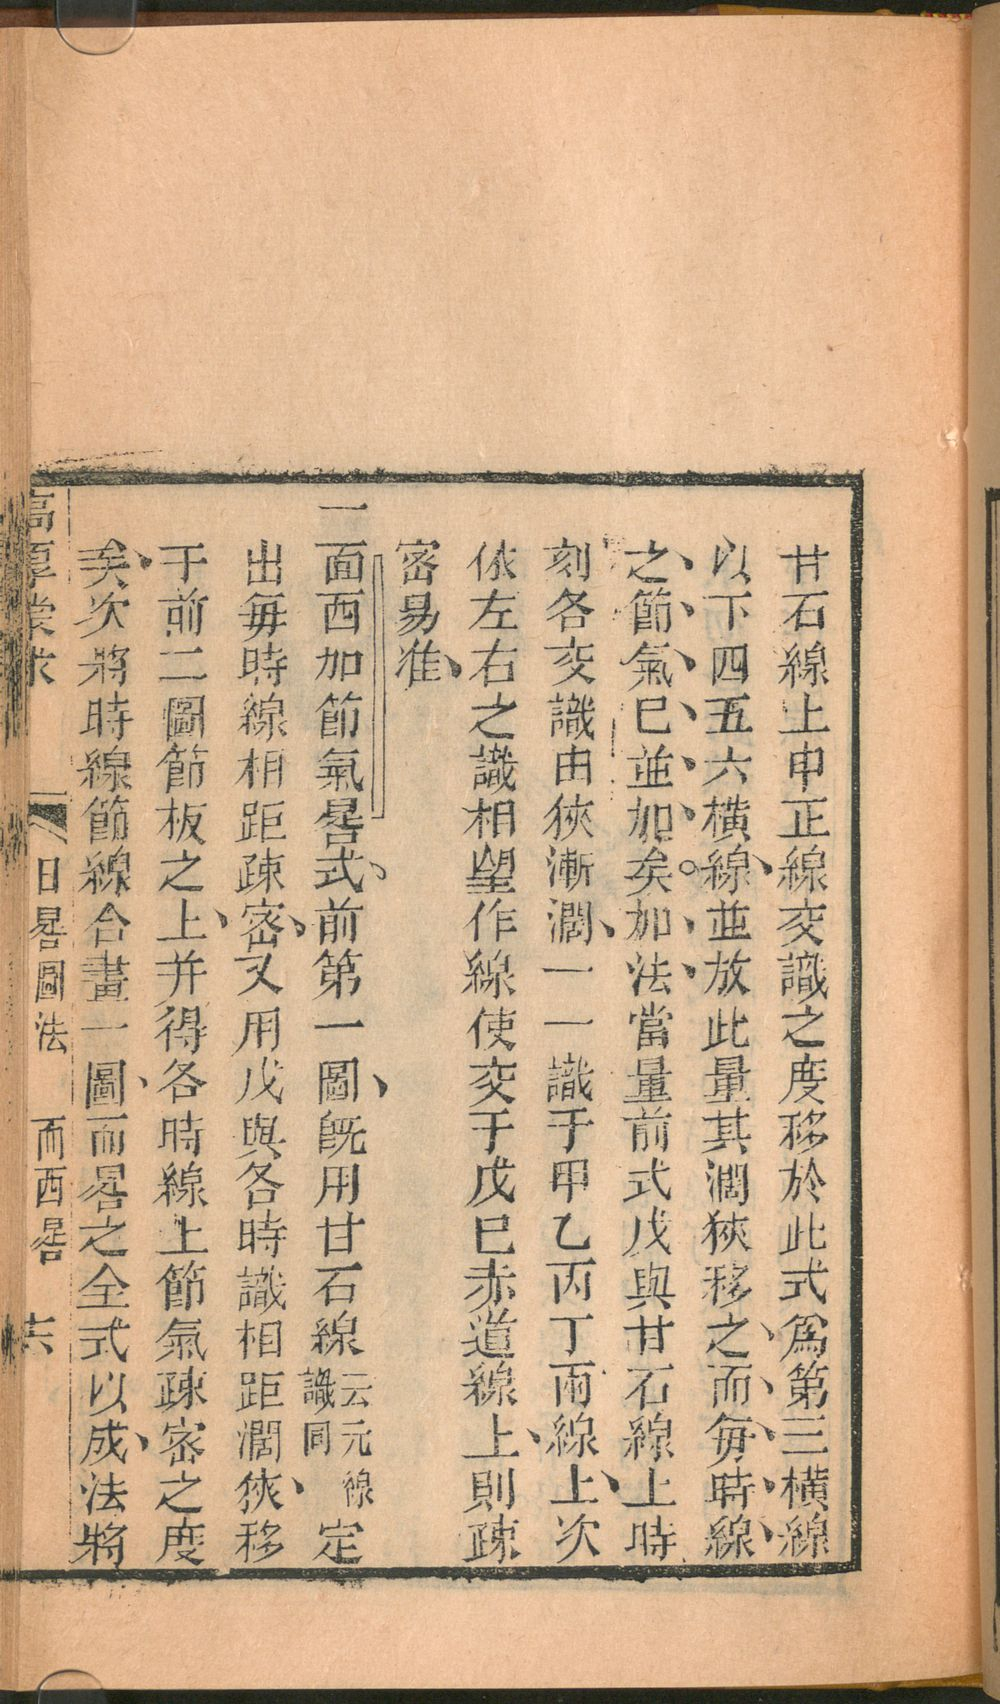 甘石線上申正線交識之度移於此式爲第三橫線
以下四五六橫線並放此量其濶狹移之而每時線
之節氣巳並加矣加法當量前式戊與甘石線上時
刻各交識由狹漸濶一一識于甲乙丙丁兩線上次
依左右之識相望作線使交于戊巳赤道線上則疎
密易准
一面西加節氣晷式前第一圖旣用甘石線云元線識同定
出每時線相距疎密又用戊與各時識相距濶狹移
于前二圖節板之上并得各時線上節氣疎密之度
矣次將時線節線合畫一圖而晷之全式以成法將
高厚蒙求
日晷圖法
面西晷
六